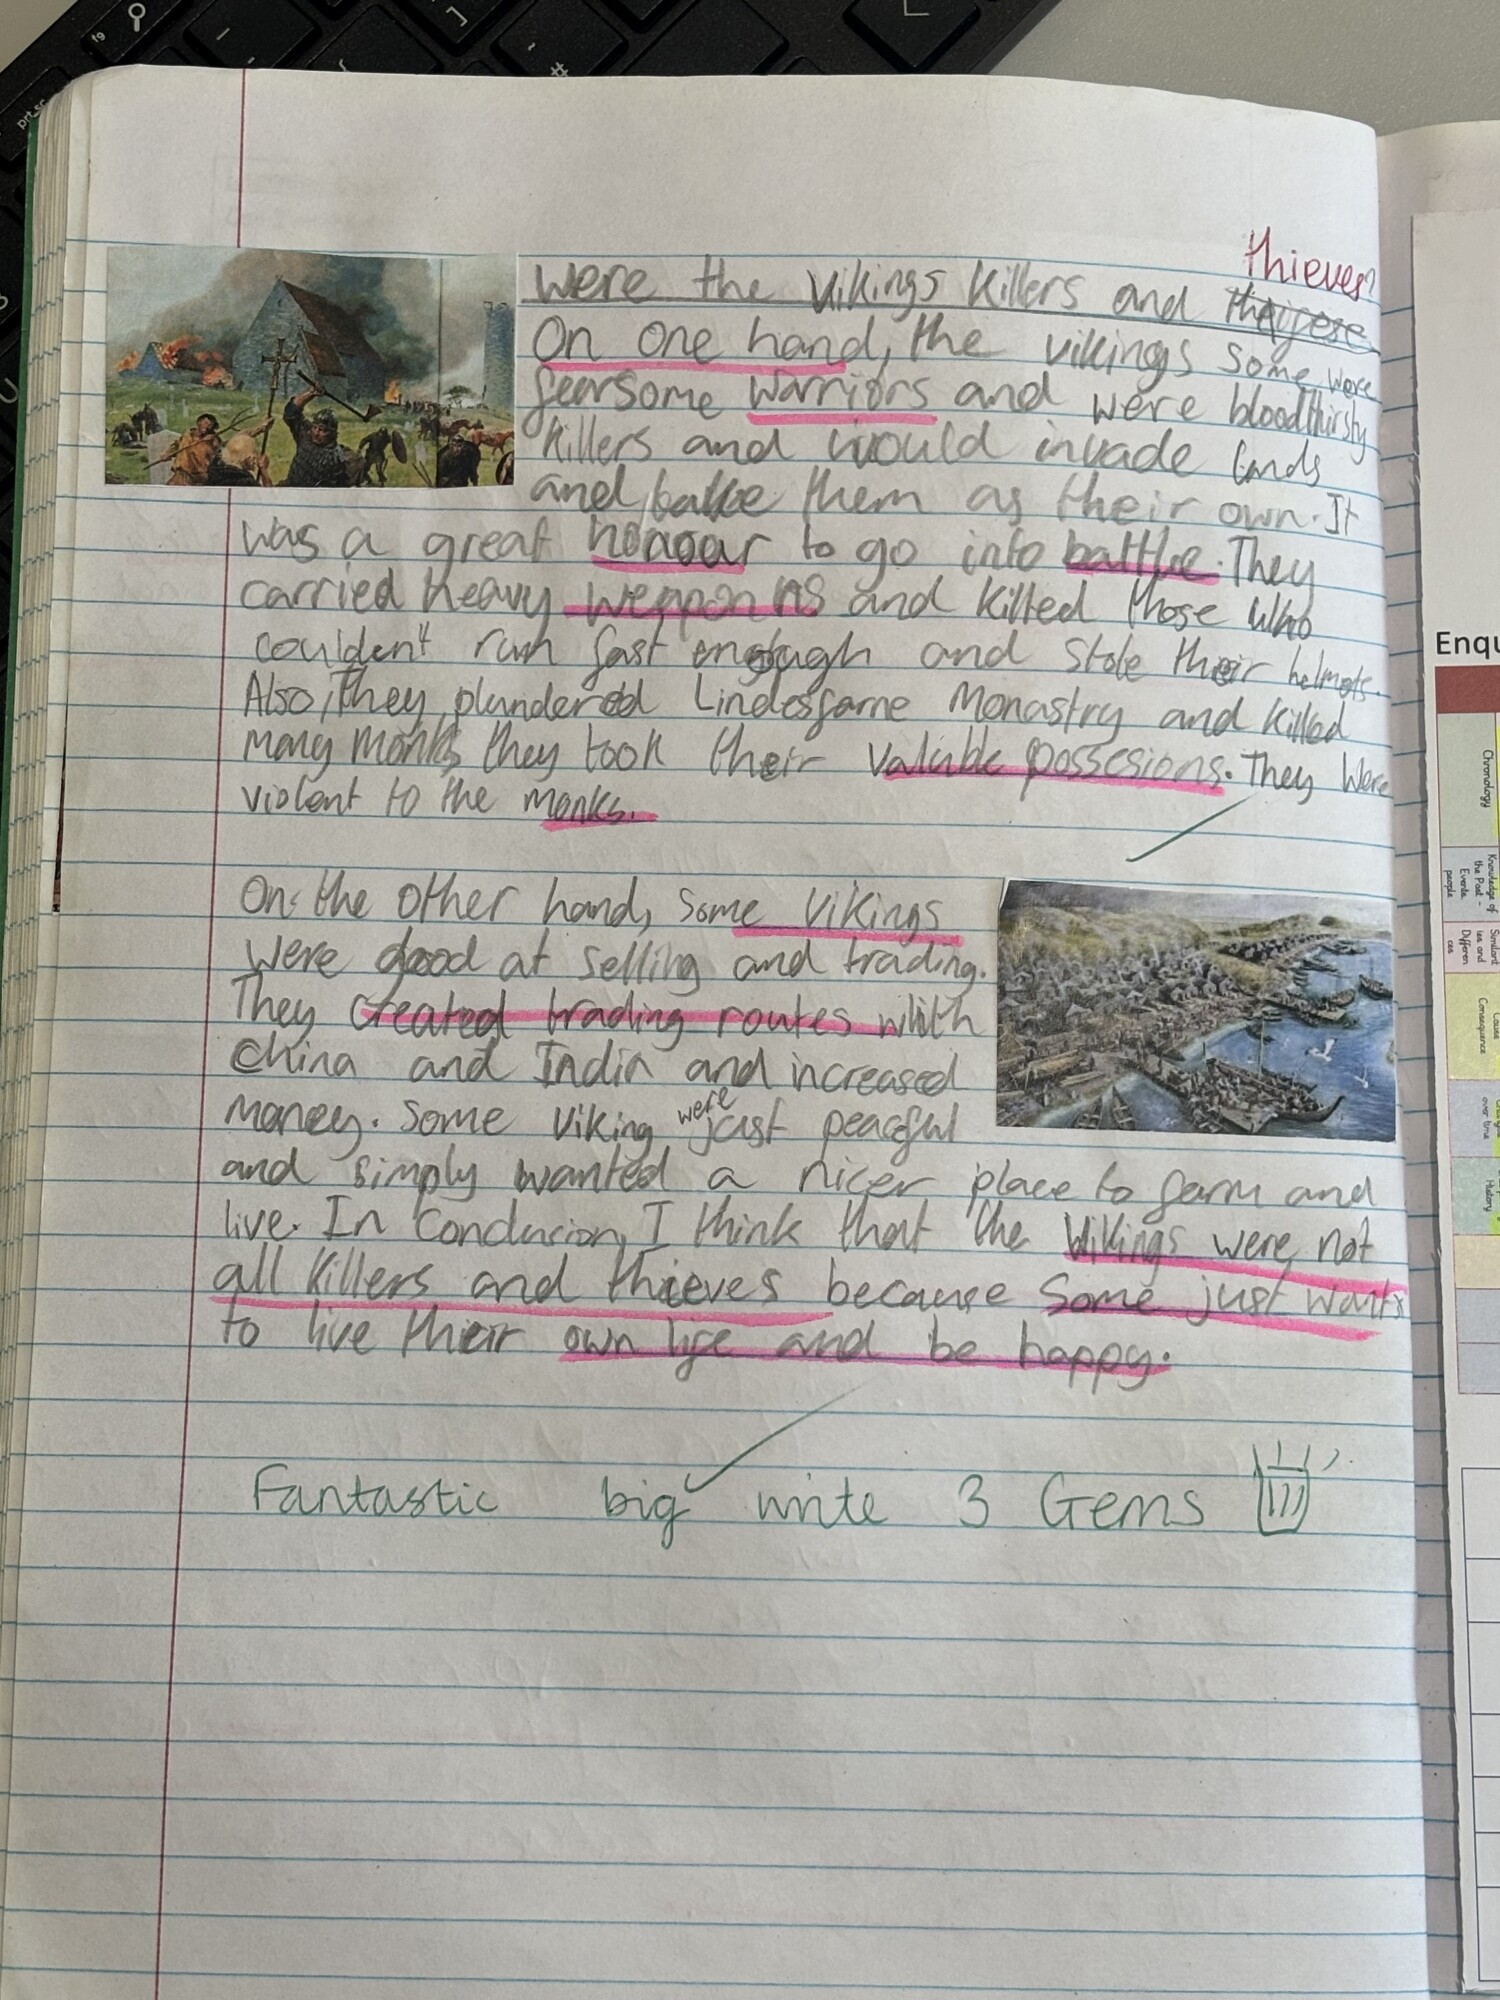 thieves?
Were the Vikings Killers and
On one hand, the vikings some were
fearsome warriors and were bloodthirsty
Killers and would invade lands
and take them as their own. It
was a great honoar to go into battle. They
carried heavy weapons and killed those who
couldent run fast enough and stole their helmets.
Also, They plundered Lindesfarne Monastry and killed
many monks they took their valuble possesions. They were
violent to the monks.
On the other hand, some vikings
were good at selling and trading.
They created trading routes with
China and India and increased
money. Some viking were just peaceful
and simply wanted a nicer place to farm and
live. In Conclusion, I think that the Vikings were not
all killers and thieves because some just wants
to live their own life and be happy.
Fantastic big write 3 Gems
prt sc
f9
#
~
]
Enqu
Chronology
Knowledge of
the Past -
Events,
people
Similarit
ies and
Differen
ces
Cause
Consequence
over time
History